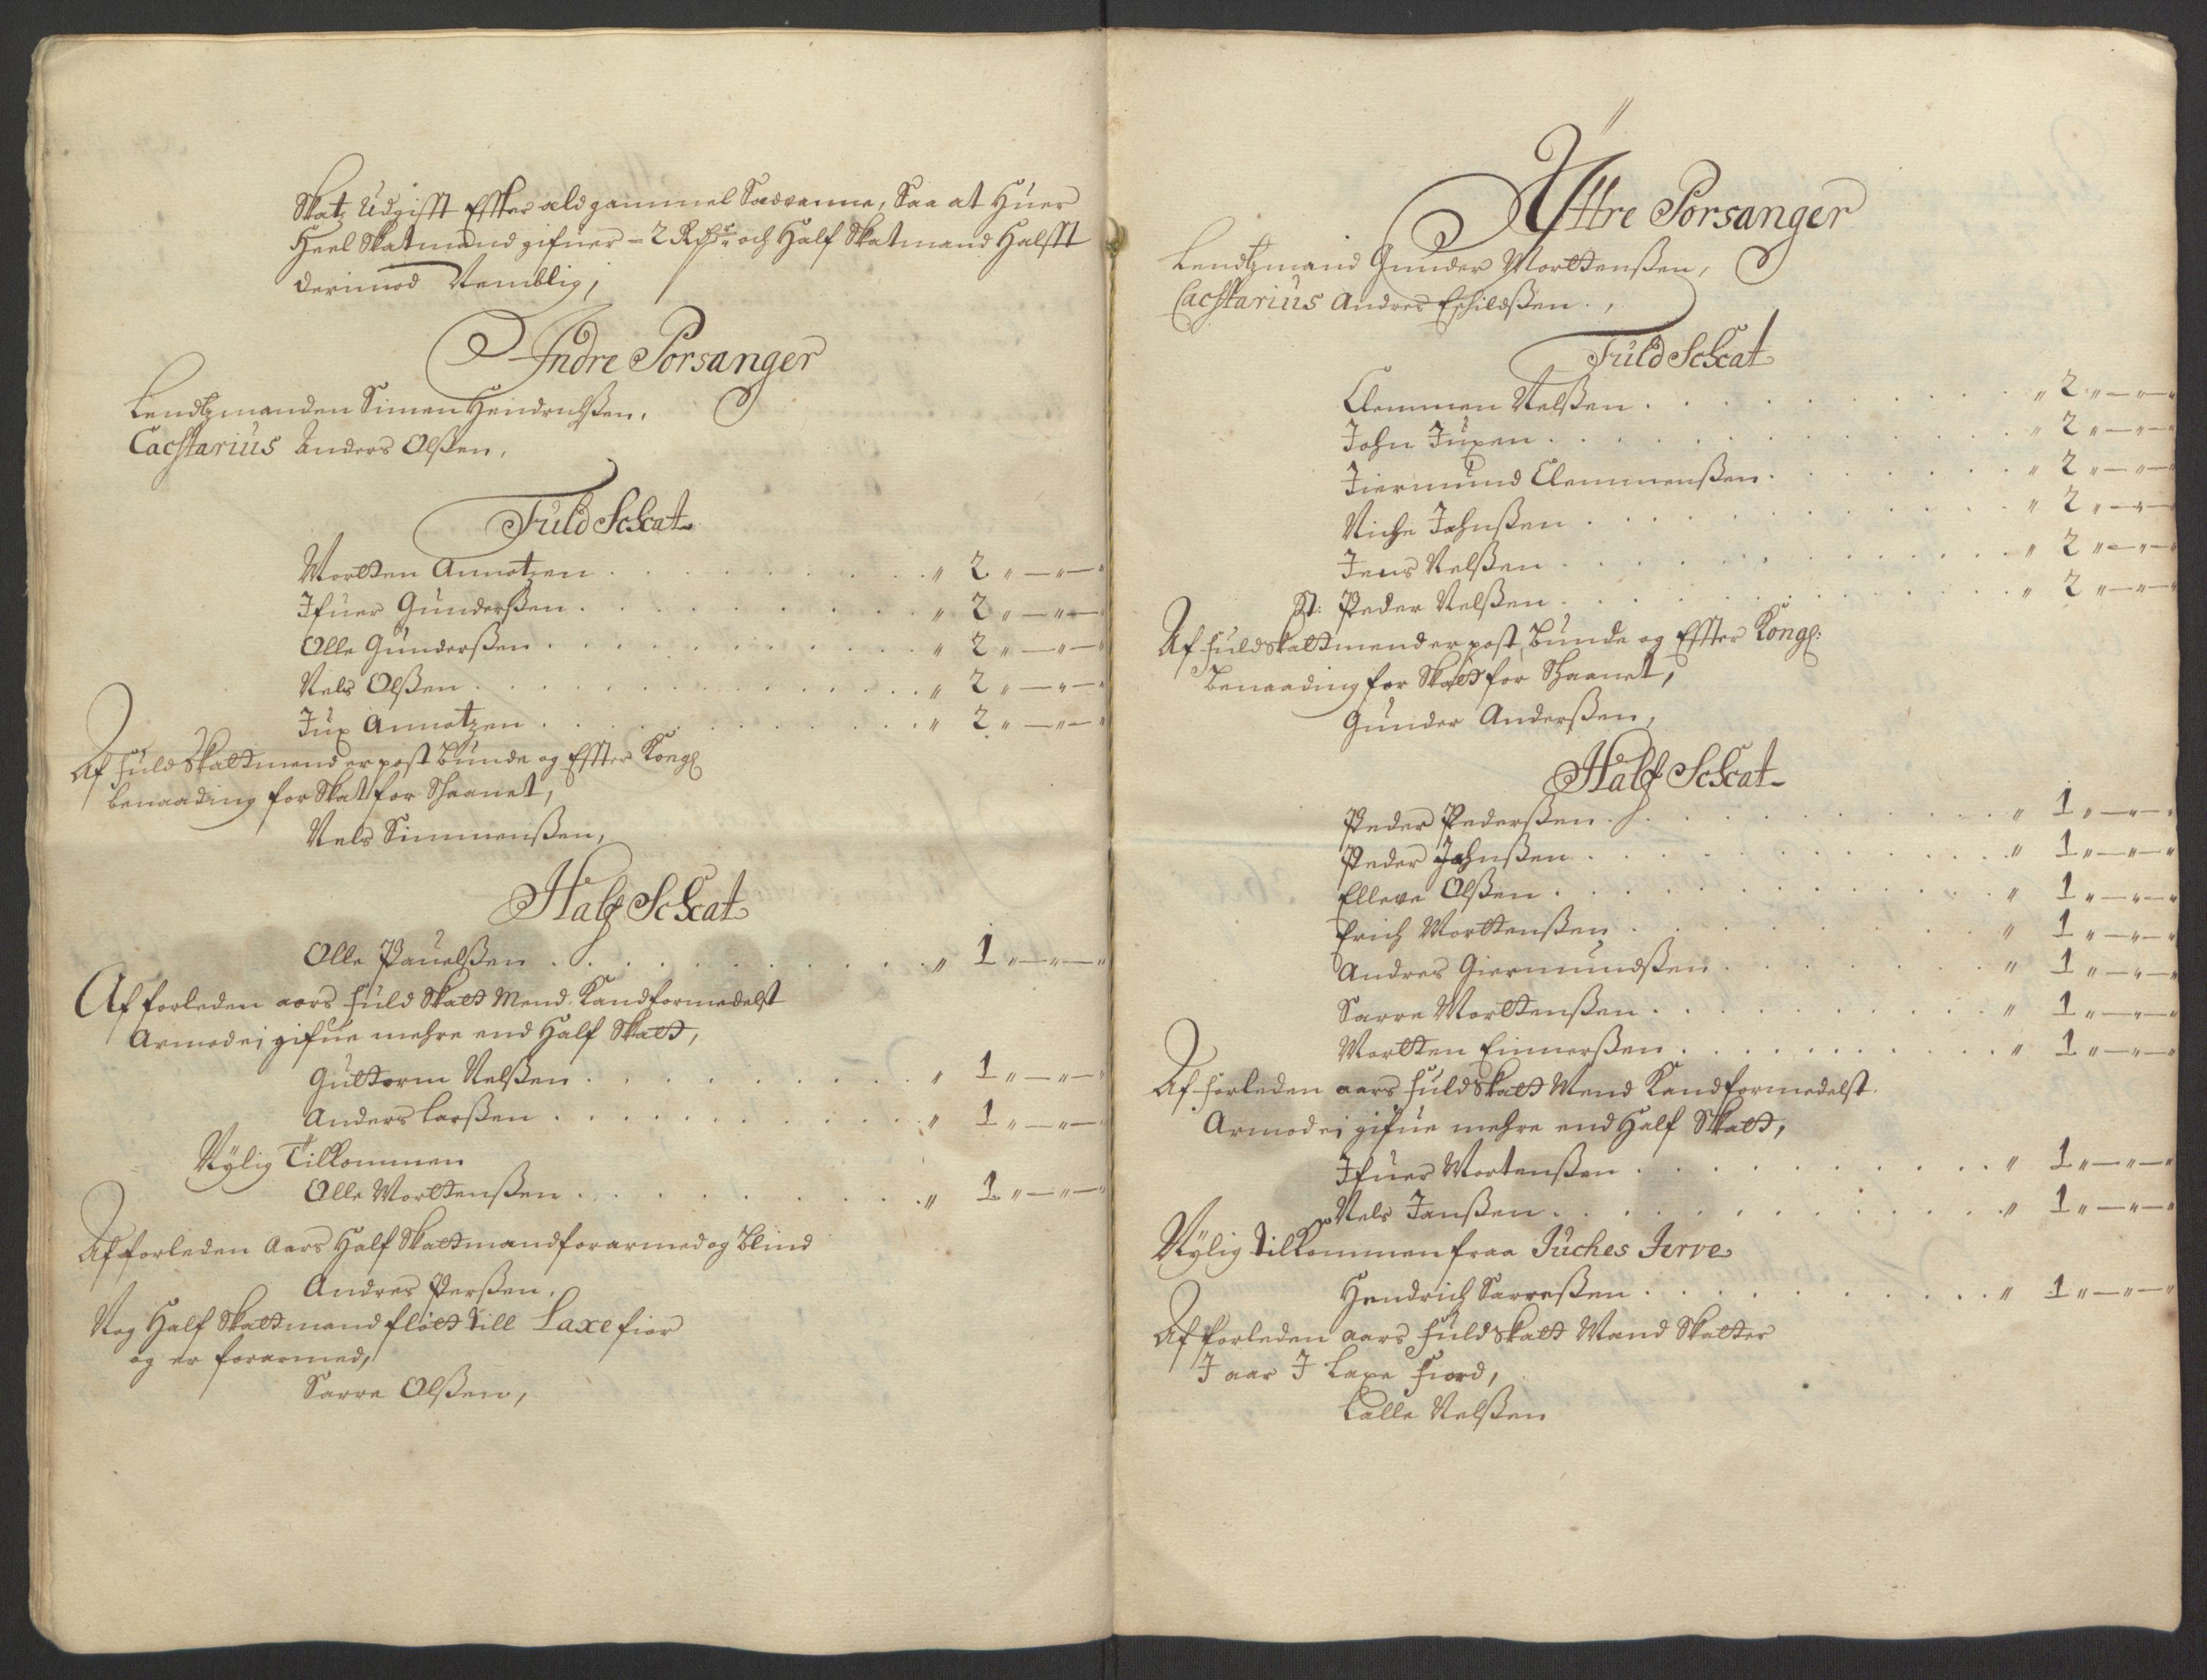 Skat, Udgifft Effter ald gammel Sædvanne, Saa at Huer
Heel Skatmand gifuer – 2 Rdr och Half Skatmand Halfft
derimod Nemblig,
Indre Porsanger
Lendtzmanden Simen Hendrichßen,
Anders Olßen,
Fuld Schat
Mortten Amnotzen . . . " 2 " — " —"
Ifuer Gunderßen . . . " 2 " — " —"
Olle Gunderßen . . . " 2 " — " —"
Nels Olßen . . . " 2 " — " —"
Jux Amnotzen . . . " 2 " — " —"
Af fuld Skattmend er post Bunde og Effter Kongl
benaading for Skat forSchaanet,
Nels Simmenßen,
Half Schat
Olle Pauelßen . . . " 1 " — " —"
Af forleden aars fuld Skatt Mend Kand formedelst
Armod ei gifue mehre end Half Skatt,
Guttorm Nelßen . . . " 1 " — " —"
Anders Larßen . . . " 1 " — " —"
Nylig Tilkommen
Olle Morttenßen . . . " 1 " — " —"
Af forleden Aars Half Skattmand forarmed og Blind
Andres Perßen,
Nog Half Skattmand fløtt till Laxefior
og er forarmed,
Sarre Olßen,
Yttre Porsanger
Lendtzmand Gunder Morttenßen,
Andres Eschildßen,
Fuld Schat
Clemmen Nelßen . . . " 2 " — " —"
John Juxen . . . " 2 " — " —"
Jiermund Clemmenßen . . . " 2 " — " —"
Niche Johnßen . . . " 2 " — " —"
Jens Nelßen . . . " 2 " — " —"
St: Peder Nelßen . . . " 2 " — " —"
Af fuld Skattmend er post Bunde og Effter Kongl:
Benaading for Skatt forSchaanet,
Gunder Anderßen,
Half Schat
Peder Pederßen . . . " 1 " — " —"
Peder Johnßen . . . " 1 " — " —"
Elleve Olßen . . . " 1 " — " —"
Erich Morttenßen . . . " 1 " — " —"
Andres Giermundßen . . . " 1 " — " —"
Sarre Morttenßen . . . " 1 " — " —"
Mortten Einnerßen . . . " 1 " — " —"
Af forleden aars fuld Skatt Mend Kand formedelst
Armod ei gifue mehre end Half Skatt,
Ifuer Mortenßen . . . " 1 " — " —"
Nels Janßen . . . " 1 " — " —"
Nylig tilkommen fraa Juches Jerve
Hendrich Sarreßen . . . " 1 " — " —"
Af forleden aars fuld Skatt Mand Skatter
I aar I Laxe fiord,
Lalle Nelßen